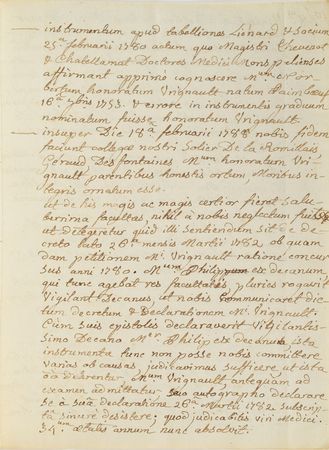 instrumentum apud tabelliones Lienard & Socium
25a februarii 1780 actum quo Magistri
& Chabellamat Doctores Medici Monspelienses
affirmant apprimè cognoscere Mum
bertum honoratum Urignault natum
16a 9bris 1753. & errore in instrumentis graduum
nominatum fuisse honoratum Urignault.
insuper Die 18a februarii 1788 nobis fidem
faciunt collegæ nostri Solier De la Romillais
Geraud Desfontaines Mum honoratum Uri-
gnault parentibus honestis ortum, Moribus in-
tegris ornatum esse.
ut de his magis ac magis certior fieret Salu-
berrima facultas, nihil à nobis neglectum fuisset
ut detegeretur quid illi sentiendum sit de de-
creto lato 26a mensis Martii 1782 ob quam-
dam petitionem Mi Urignault ratione concur-
sus anni 1780. Mum Philip ex decanum
qui tunc agebat res facultatis pluries rogavit
Vigilant Decanus, ut nobis Communicaret dic-
tum decretum & Declarationem Mi Urignault.
Cùm suis epistolis declaraverit Vigilantis-
simo Decano Mer Philip ex decanus ista
instrumenta tunc non posse nobis committere
varias ob causas, judicavimus sufficere ut ista
ad examen admittatur suo autographo declarare
se à suâ declaratione 26a Martii 1782 subscrip-
tâ sincerè desistere; quod judicabitis viri Medici.
34um ætatis annum nunc absolvit.